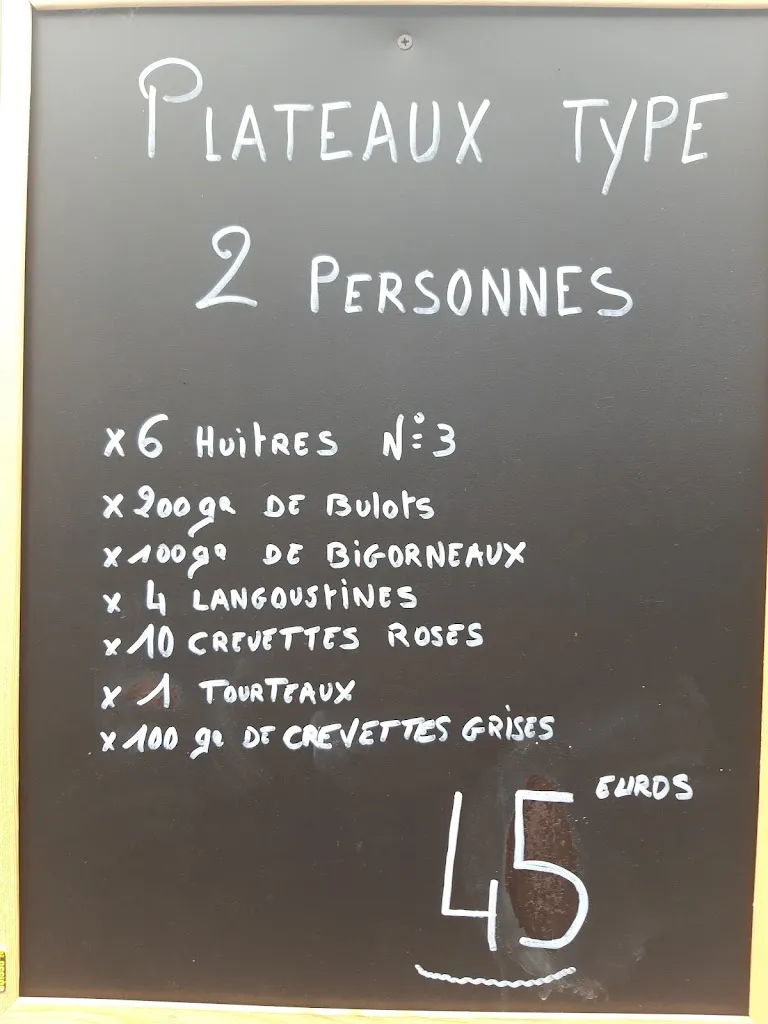 PLATEAUX TYPE
2 PERSONNES
x 6 HUITRES N° 3
x 200 gr DE BULOTS
x 100 gr DE BIGORNEAUX
x 4 LANGOUSTINES
x 10 CREVETTES ROSES
x 1 TOURTEAUX
x 100 gr DE CREVETTES GRISES
45 EUROS